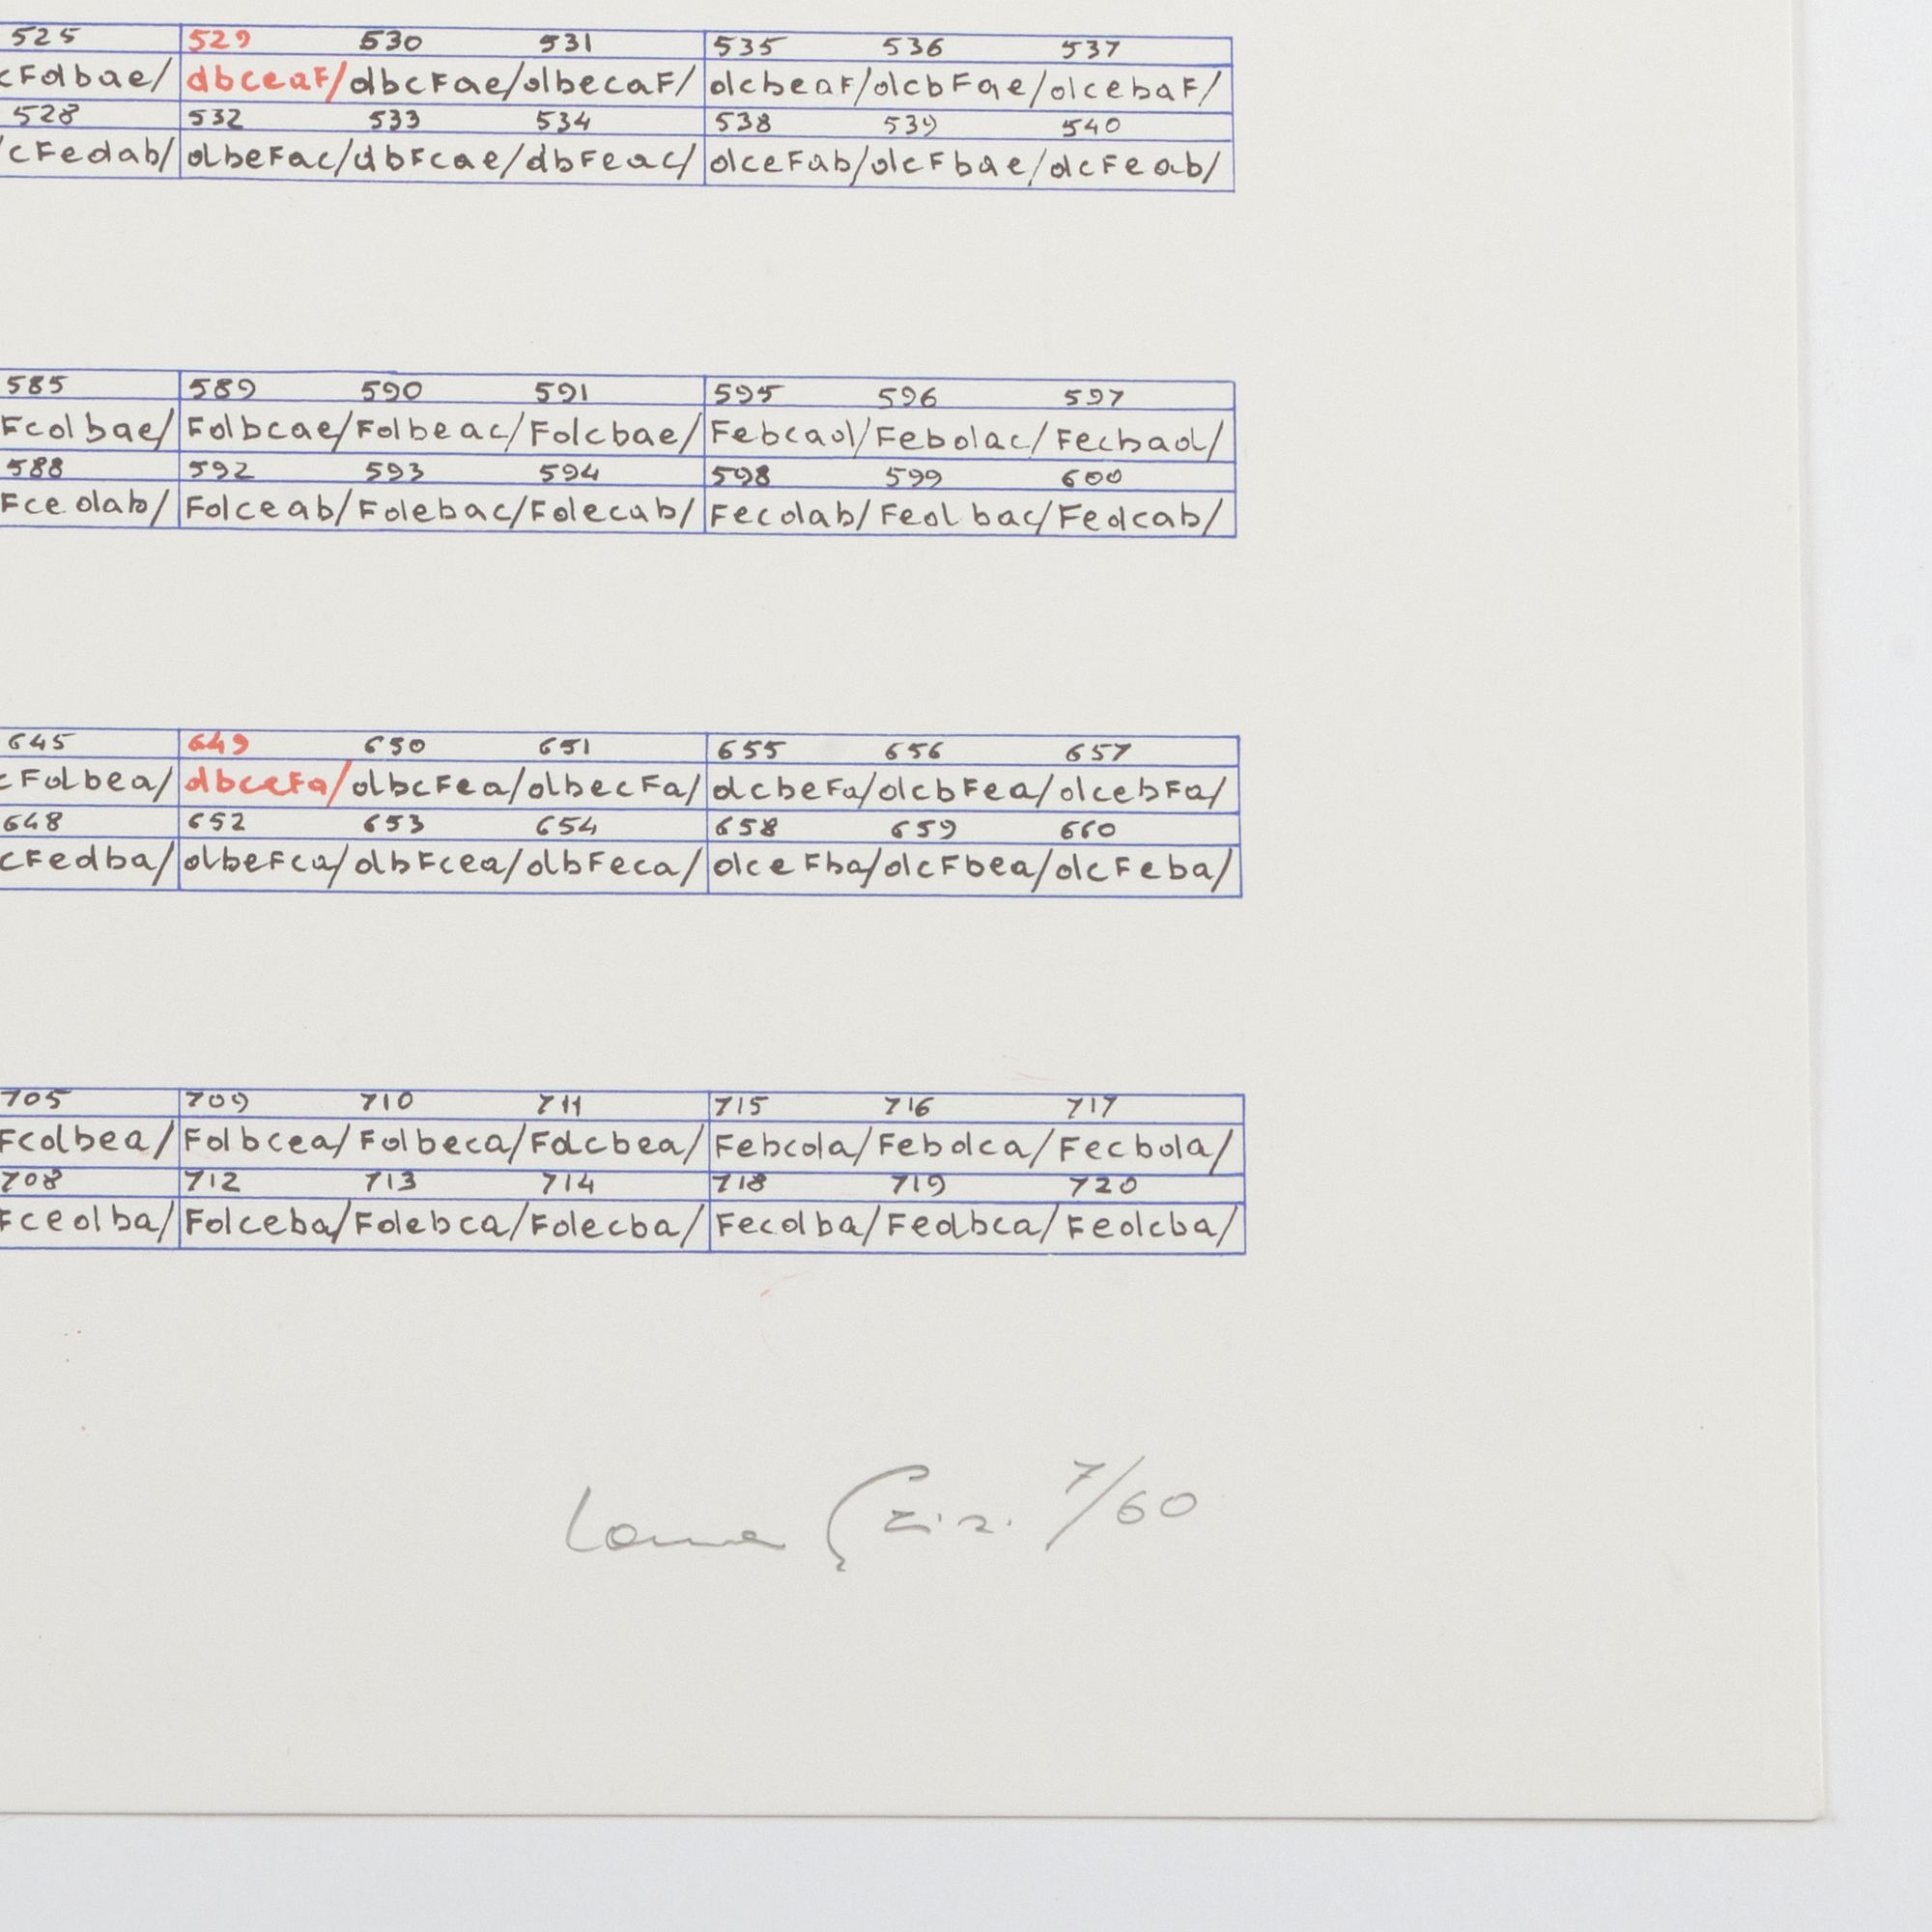 525 529 530 531 535 536 537
cFdbae/ dbceaF/ dbcFae/ dbecaF/ dcbeaF/ dcbFae/ dcebaF/
528 532 533 534 538 539 540
cFedab/ dbeFac/ dbFcae/ dbFeac/ dceFab/ dcFbae/ dcFeab/
585 589 590 591 595 596 597
Fcdbae/ Fdbcae/ Fdbeac/ Fdcbae/ Febcad/ Febdac/ Fecbad/
588 592 593 594 598 599 600
Fcedab/ Fdceab/ Fdebac/ Fdecab/ Fecdab/ Fedbac/ Fedcab/
645 649 650 651 655 656 657
cFdbea/ dbceFa/ dbcFea/ dbecFa/ dcbeFa/ dcbFea/ dcebFa/
648 652 653 654 658 659 660
cFedba/ dbeFca/ dbFcea/ dbFeca/ dceFba/ dcFbea/ dcFeba/
705 709 710 711 715 716 717
Fcdbea/ Fdbcea/ Fdbeca/ Fdcbea/ Febcda/ Febdca/ Fecbda/
708 712 713 714 718 719 720
Fcedba/ Fdceba/ Fdebca/ Fdecba/ Fecdba/ Fedbca/ Fedcba/
7/60